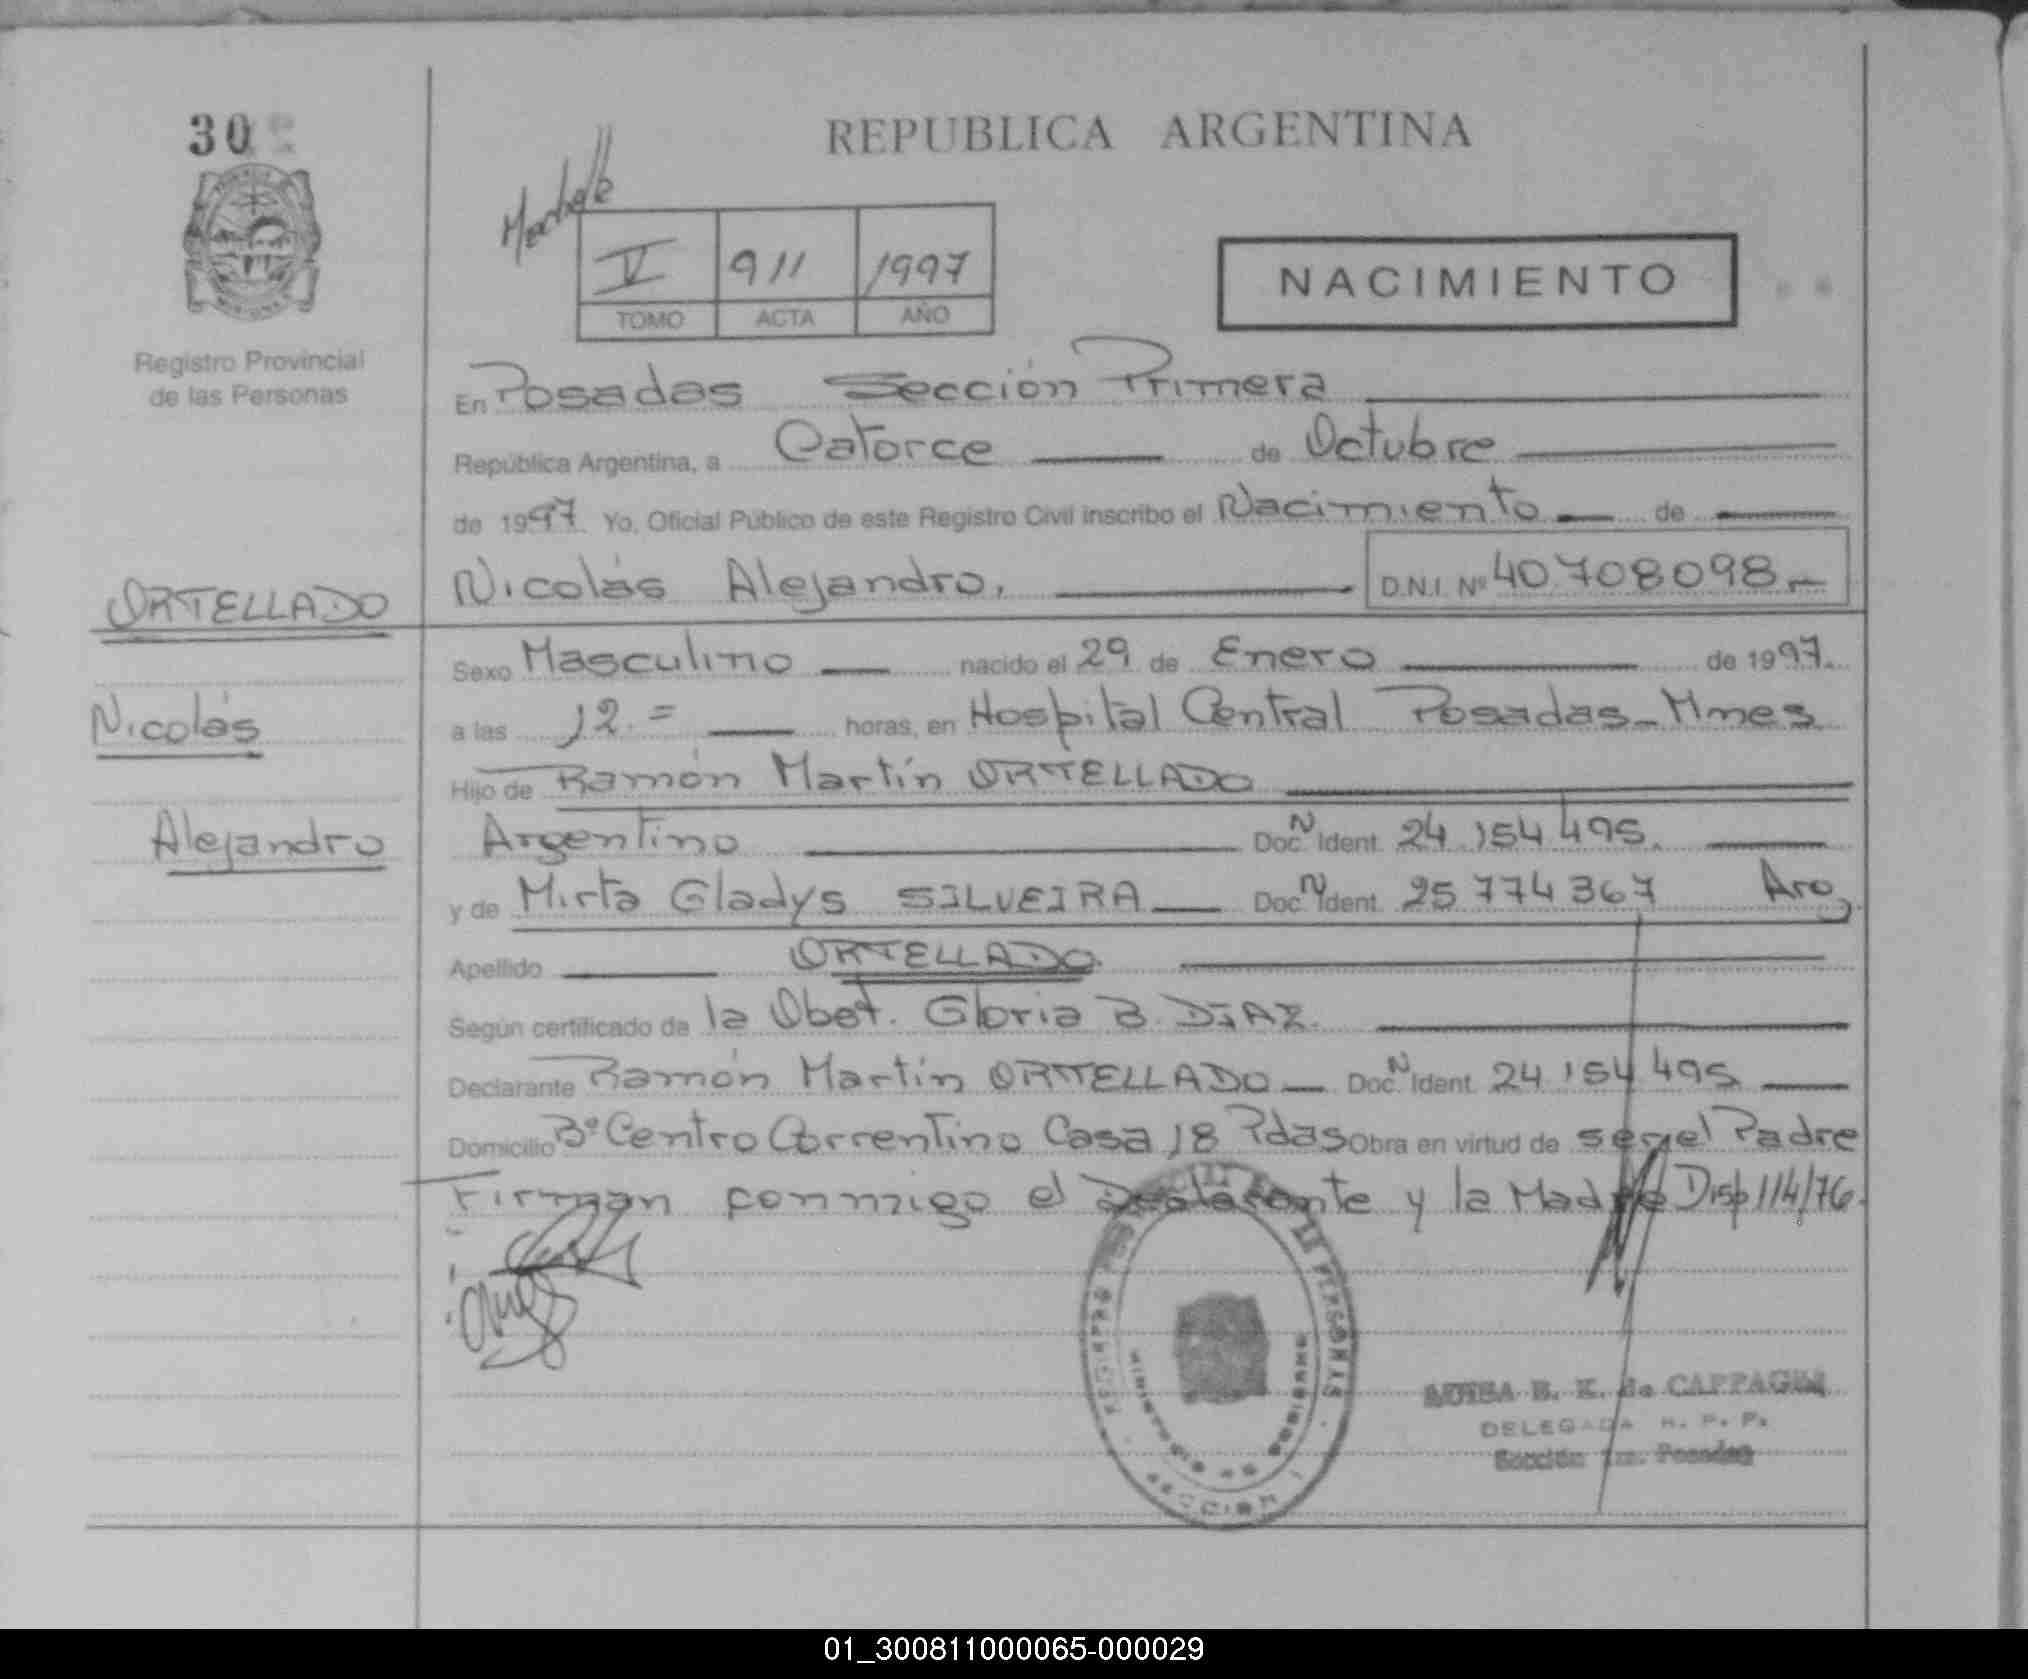 30
REPUBLICA ARGENTINA
V 911 1997
TOMO ACTA AÑO
NACIMIENTO
Registro Provincial
de las Personas
En Posadas Sección Primera
República Argentina, a Catorce de Octubre
de 1997. Yo, Oficial Público de este Registro Civil inscribo el Nacimiento de
Nicolás Alejandro. D.N.I. Nº 40.708098.-
ORTELLADO
Sexo Masculino nacido el 29 de Enero de 1997.
Nicolás
a las 12.= horas, en Hospital Central Posadas-Mnes
Hijo de Ramón Martín ORTELLADO
Alejandro
Argentino Doc. N Ident. 24.154.495.
y de Mirta Gladys SILVEIRA Doc. N Ident. 25 774 367 Arg.
Apellido ORTELLADO
Según certificado de la Obst. Gloria B. DIAZ.
Declarante Ramón Martín ORTELLADO Doc. N Ident. 24.154.495
Domicilio Bº Centro Correntino Casa 18 Pdas Obra en virtud de ser el Padre
Firman conmigo el Declarante y la Madre Disp 114/76.
B. K. de CAPPAGLI
DELEGADA R. P. P.
Sección 1ra. Posadas
01_300811000065-000029